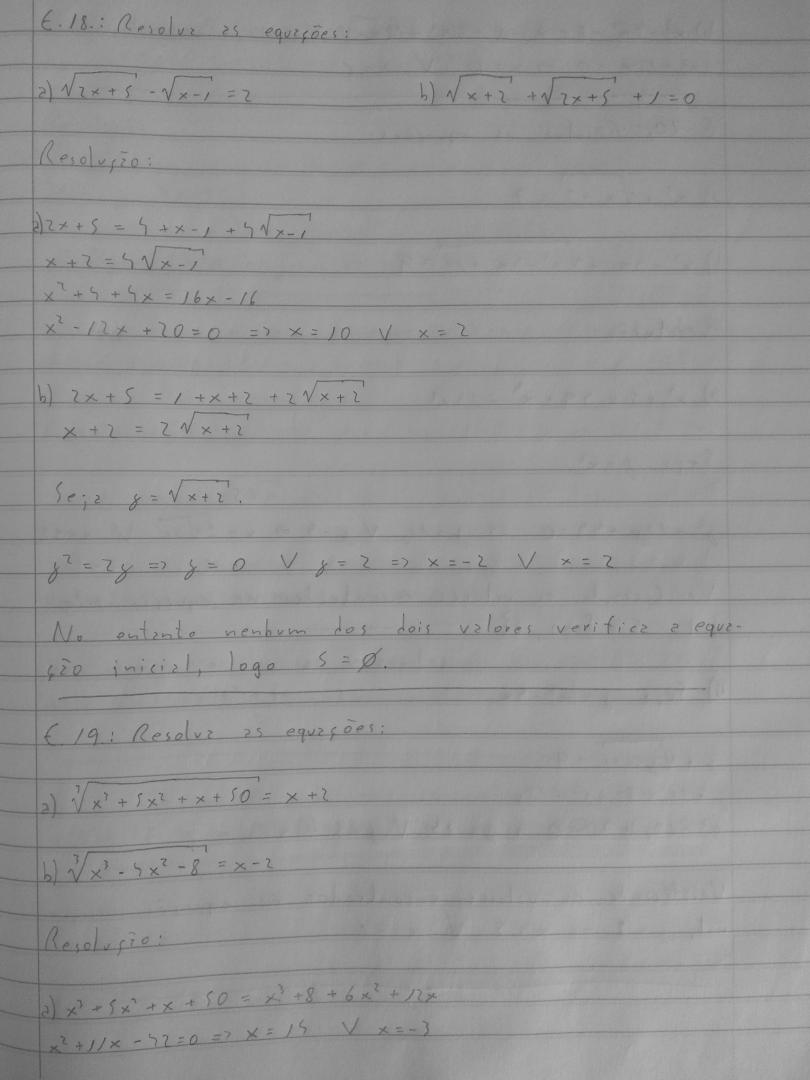 E.18.: Resolva as equações:
a) √(2x+5) - √(x-1) = 2    b) √(x+2) + √(2x+5) + 1 = 0
Resolução:
a) 2x+5 = 4+x-1+4√(x-1)
x+2 = 4√(x-1)
x²+4+4x = 16x-16
x²-12x+20=0 => x=10 ∨ x=2
b) 2x+5 = 1+x+2+2√(x+2)
x+2 = 2√(x+2)
Seja y = √(x+2).
y² = 2y => y=0 ∨ y=2 => x=-2 ∨ x=2
No entanto nenhum dos dois valores verifica a equa-
ção inicial, logo S=∅.
E.19.: Resolva as equações:
a) ³√(x³+5x²+x+50) = x+2
b) ³√(x³-4x²-8) = x-2
Resolução:
a) x³+5x²+x+50 = x³+8+6x²+12x
x²+11x-42=0 => x=14 ∨ x=-3